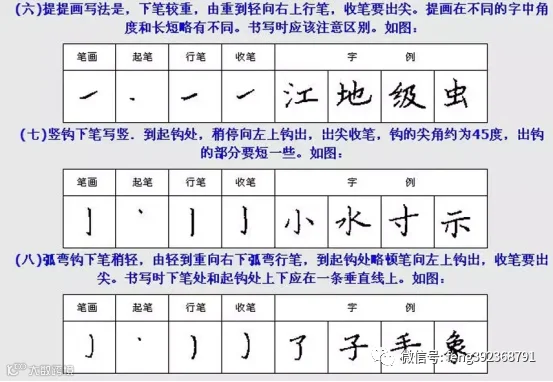 (六)提提画写法是,下笔较重,由重到轻向右上行笔,收笔要出尖。提画在不同的字中角
度和长短略有不同。书写时应该注意区别。如图:
笔画 起笔 行笔 收笔 字 例
江 地 级 虫
(七)竖钩下笔写竖.到起钩处,稍停向左上钩出,出尖收笔,钩的尖角约为45度,出钩
的部分要短一些。如图:
笔画 起笔 行笔 收笔 字 例
小 水 寸 示
(八)弧弯钩下笔稍轻,由轻到重向右下弧弯行笔,到起钩处略顿笔向左上钩出,收笔要出
尖。书写时下笔处和起钩处上下应在一条垂直线上。如图:
笔画 起笔 行笔 收笔 字 例
了 子 手 象
微信号: feng392368791
大鱼跨境